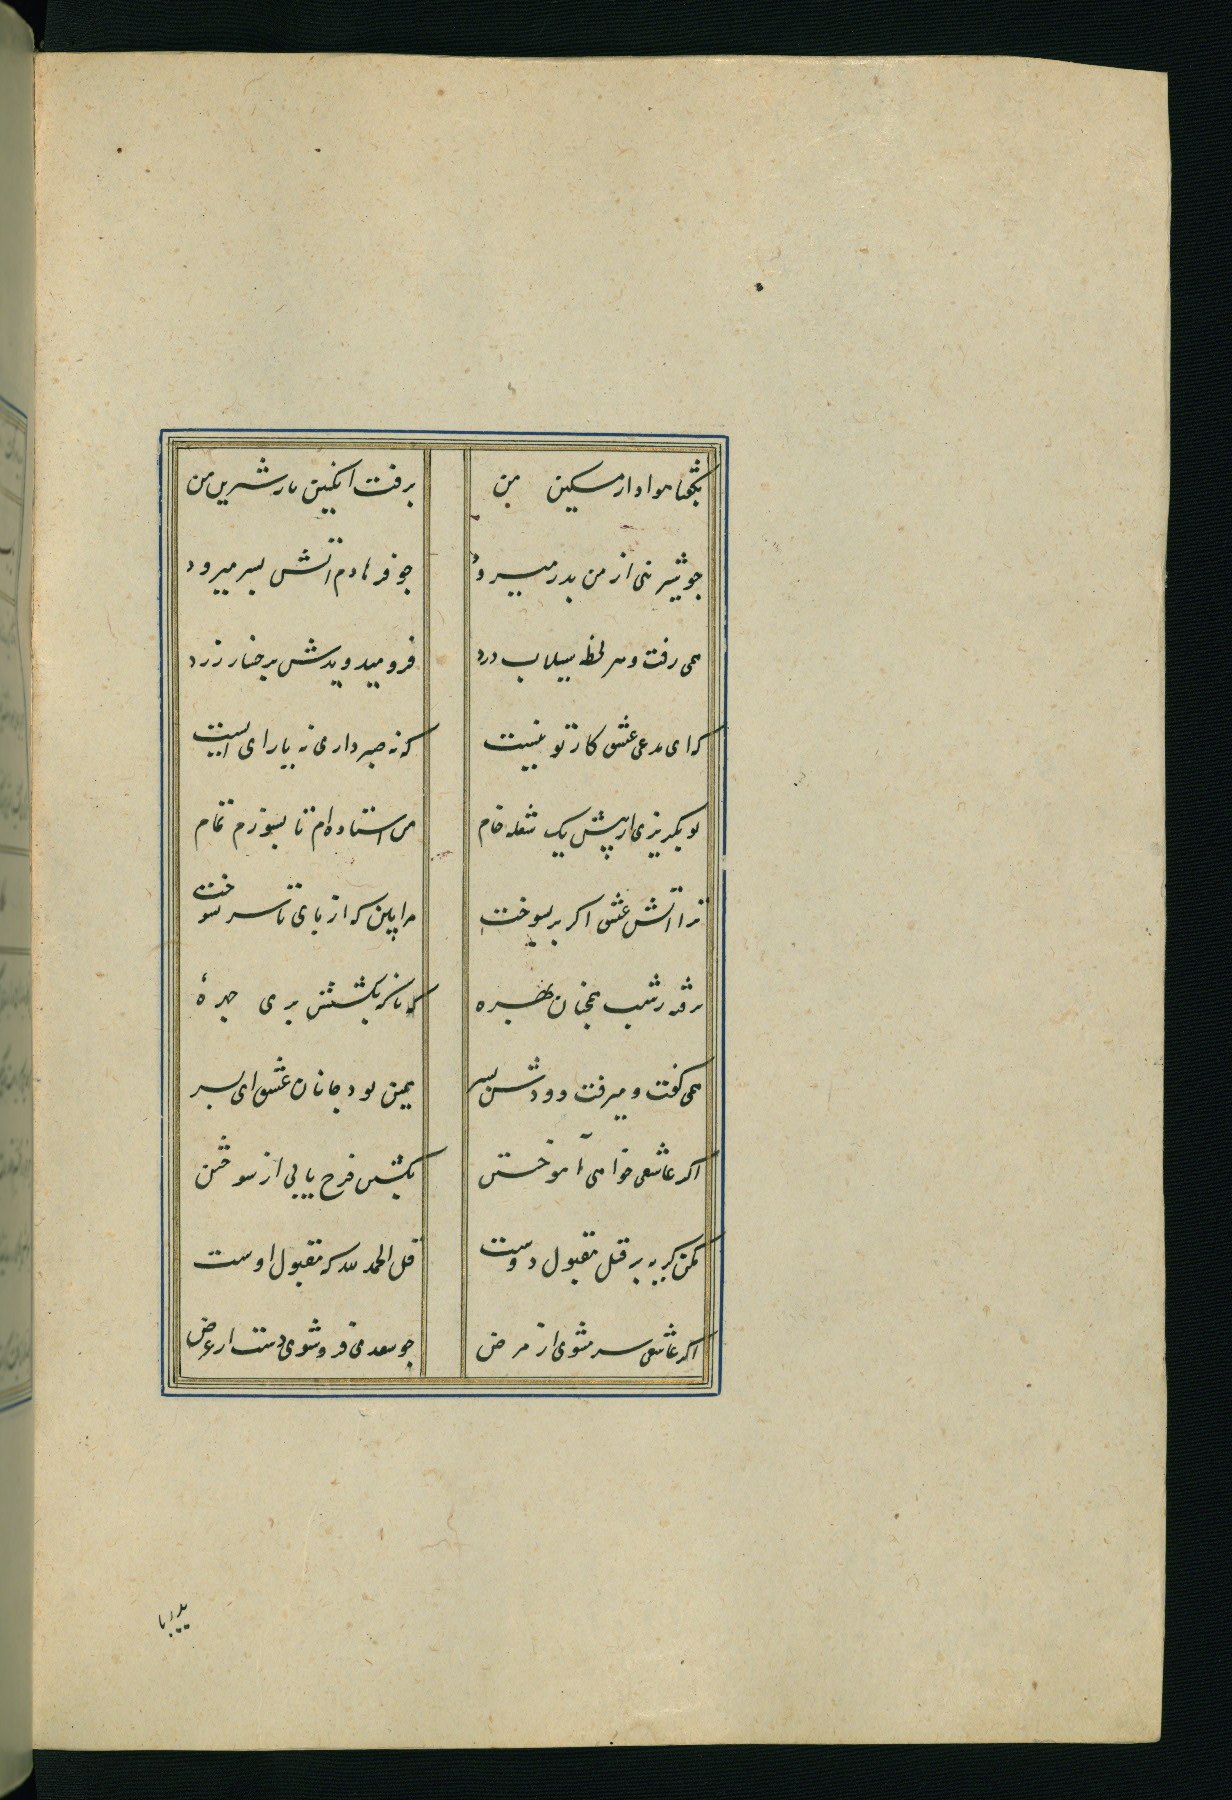 بگفتا هوادار مسکین من برفت انگبین یار شیرین من
جو شیرینی از من بدر میرود جو فرهادم اتش بسر میرود
همی رفت و هر لحظه سیلاب درد فرو میدویدش برخسار زرد
که ای مدعی عشق کار تو نیست که نه صبر داری نه یارای ایست
تو بگریزی از پیش یک شعله خام من استاده‌ام تا بسوزم تمام
ترا اتش عشق اگر پر بسوخت مرا بین که از پای تا سر بسوخت
نرفته ز شب همچنان بهره که ناگه بکشتش پری جهرهٔ
همی گفت و میرفت دودش بسر همین بود جانان عشق ای پسر
اگر عاشقی خواهی آموختن بکشتن فرح یابی از سوختن
مکن گریه بر قتل مقبول دوست قل الحمد لله که مقبول اوست
اگر عاشقی سر مشوی از مرض جو سعدی فرو شوی دست از غرض